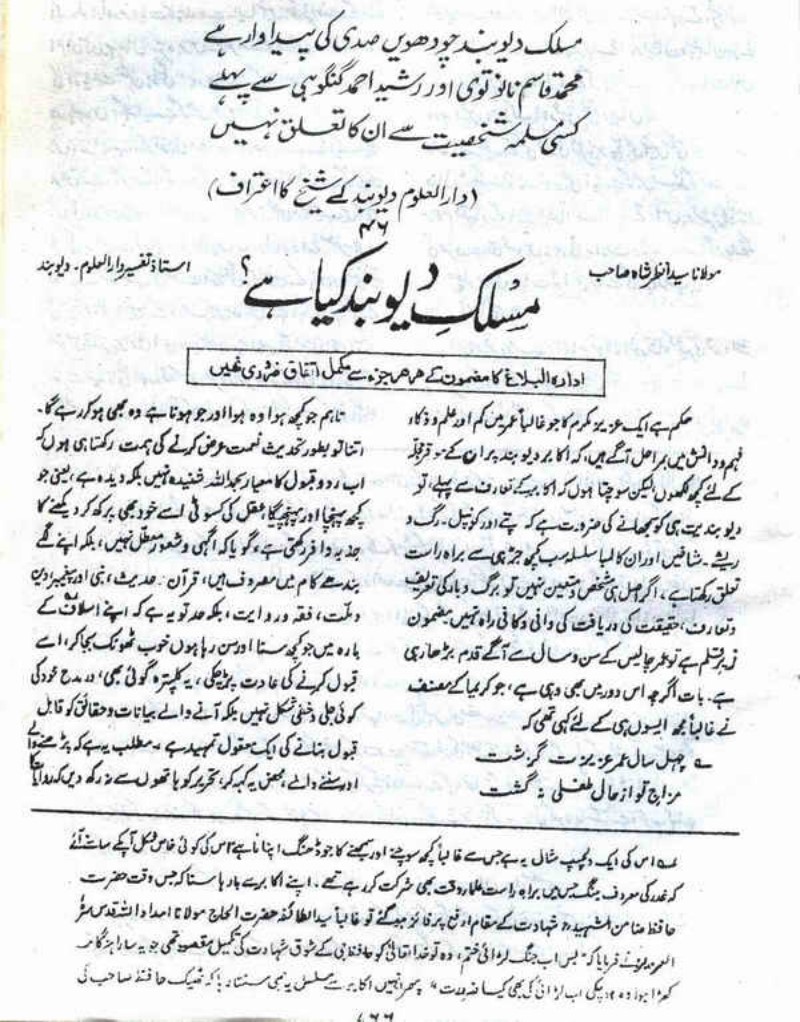 مسلک دیوبند چودھویں صدی کی پیداوار ہے
محمد قاسم نانوتوی اور رشید احمد گنگوہی سے پہلے
کسی مسلمہ شخصیت سے ان کا تعلق نہیں
(دارالعلوم دیوبند کے شیخ کا اعتراف)
۴۶
مولانا سید انظر شاہ صاحب
مسلک دیوبند کیا ہے؟
استاذ تفسیر دارالعلوم۔ دیوبند
ادارہ البلاغ کا مضمون کے ھر ھر جزء سے مکمل اتفاق ضروری نھیں
حکم ہے ایک عزیز مکرم کا جو غالباً عمر میں کم اور علم و ذکاء
فہم و دانش میں مراحل آگے ہیں، کہ اکابر دیوبند پر ان کے موقر مجلہ
کے لئے کچھ لکھوں لیکن سوچتا ہوں کہ اکابر کے تعارف سے پہلے، تو
دیوبندیت ہی کو سمجھانے کی ضرورت ہے کہ پتے اور کونپل۔ رگ و
ریشے۔ شاخیں اور ان کا لمبا سلسلہ سب کچھ جڑ ہی سے براہ راست
تعلق رکھتا ہے، اگر اصل ہی مشخص و متعین نہیں تو برگ و بار کی تعریف
و تعارف، حقیقت کی دریافت کی وافی و کافی راہ نہیں۔ مضمون
زیر قلم ہے تو عمر چالیس کے سن و سال سے آگے قدم بڑھا رہی
ہے۔ بات اگرچہ اس دور میں بھی وہی ہے، جو کریما کے مصنف
نے غالباً مجھ ایسوں ہی کے لئے کہی تھی کہ
چہل سال عمر عزیزت گزشت
مزاج تو از حال طفلی نہ گشت
تاہم جو کچھ ہوا وہ ہوا اور جو ہونا ہے وہ بھی ہو کر رہے گا۔
اتنا تو بطور تحدیث نعمت عرض کرنے کی ہمت رکھتا ہی ہوں کہ
اب رد و قبول کا معیار بحمداللہ شنیدہ نہیں بلکہ دیدہ ہے، یعنی جو
کچھ پہنچا اور پہنچے گا، عقل کی کسوٹی اسے خود بھی پرکھ کر دیکھنے کا
جذبہ وافر رکھتی ہے، گویا کہ آگہی و شعور معطل نہیں، بلکہ اپنے لگے
بندھے کام میں مصروف ہیں، قرآن۔ حدیث، نبی اور پیغمبر، دین
و ملت، فقہ و روایت، بلکہ حد تو یہ ہے کہ اپنے اسلاف کے
بارہ میں جو کچھ سنا اور سن رہا ہوں خوب ٹھونک بجا کر، اسے
قبول کرنے کی عادت پڑ چکی، یہ کلپترہ گوئی بھی، در مدح خود کی
کوئی جلی و خفی شکل نہیں بلکہ آنے والے بیانات و حقائق کو قابل
قبول بنانے کی ایک معقول تمہید ہے، مطلب یہ ہے کہ پڑھنے والے
اور سننے والے، محض یہ کہہ کر، تحریر کو ہاتھوں سے نہ رکھ دیں کہ
اس کی ایک دلچسپ مثال یہ ہے جس سے غالباً کچھ سوچنے اور سمجھنے کا جو ڈھنگ اپنا نا ہے اس کی کوئی خاص شکل آپ کے سامنے آئے
کہ غدر کی معروف جنگ جس میں براہ راست علماء وقت بھی شرکت کر رہے تھے۔ اپنے اکابر سے بارہا سنا کہ جس وقت حضرت
حافظ ضامن الشہید شہادت کے مقام ارفع پر فائز ہو گئے تو غالباً سید الطائفہ حضرت الحاج مولانا امداد اللہ قدس سرہ
العزیز نے فرمایا کہ بس اب جنگ لڑائی ختم، وہ تو خدا تعالیٰ کو حافظ جی کے شوق شہادت کی تکمیل مقصود تھی جو یہ سارا ہنگامہ
کھڑا ہوا اب لڑائی کی بھی کیا ضرورت" پھر انہیں اکابر سے مسلسل یہ بھی سنتا رہا کہ ٹھیک حافظ صاحب کی